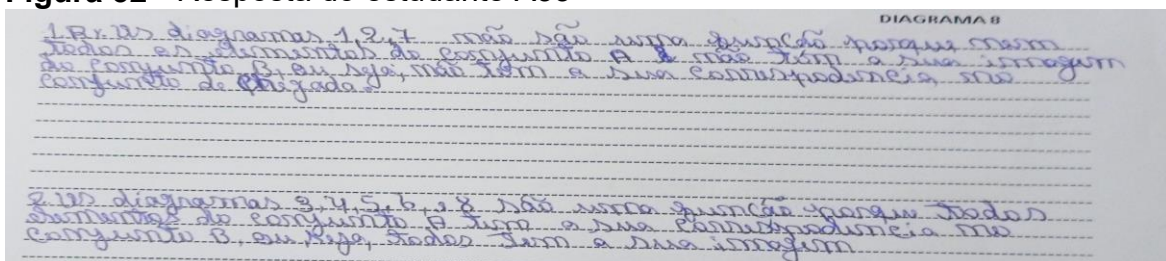 DIAGRAMA 8
1.R: Os diagramas 1,2,7 não são uma função porque nem
todos os elementos do conjunto A não têm a sua imagem
do conjunto B, ou seja, não tem a sua correspodência no
conjunto de chegada.
2. Os diagramas 3,4,5,6, e 8 são uma função porque todos
elementos do conjunto A tem a sua correspodência no
conjunto B, ou seja, todos tem a sua imagem